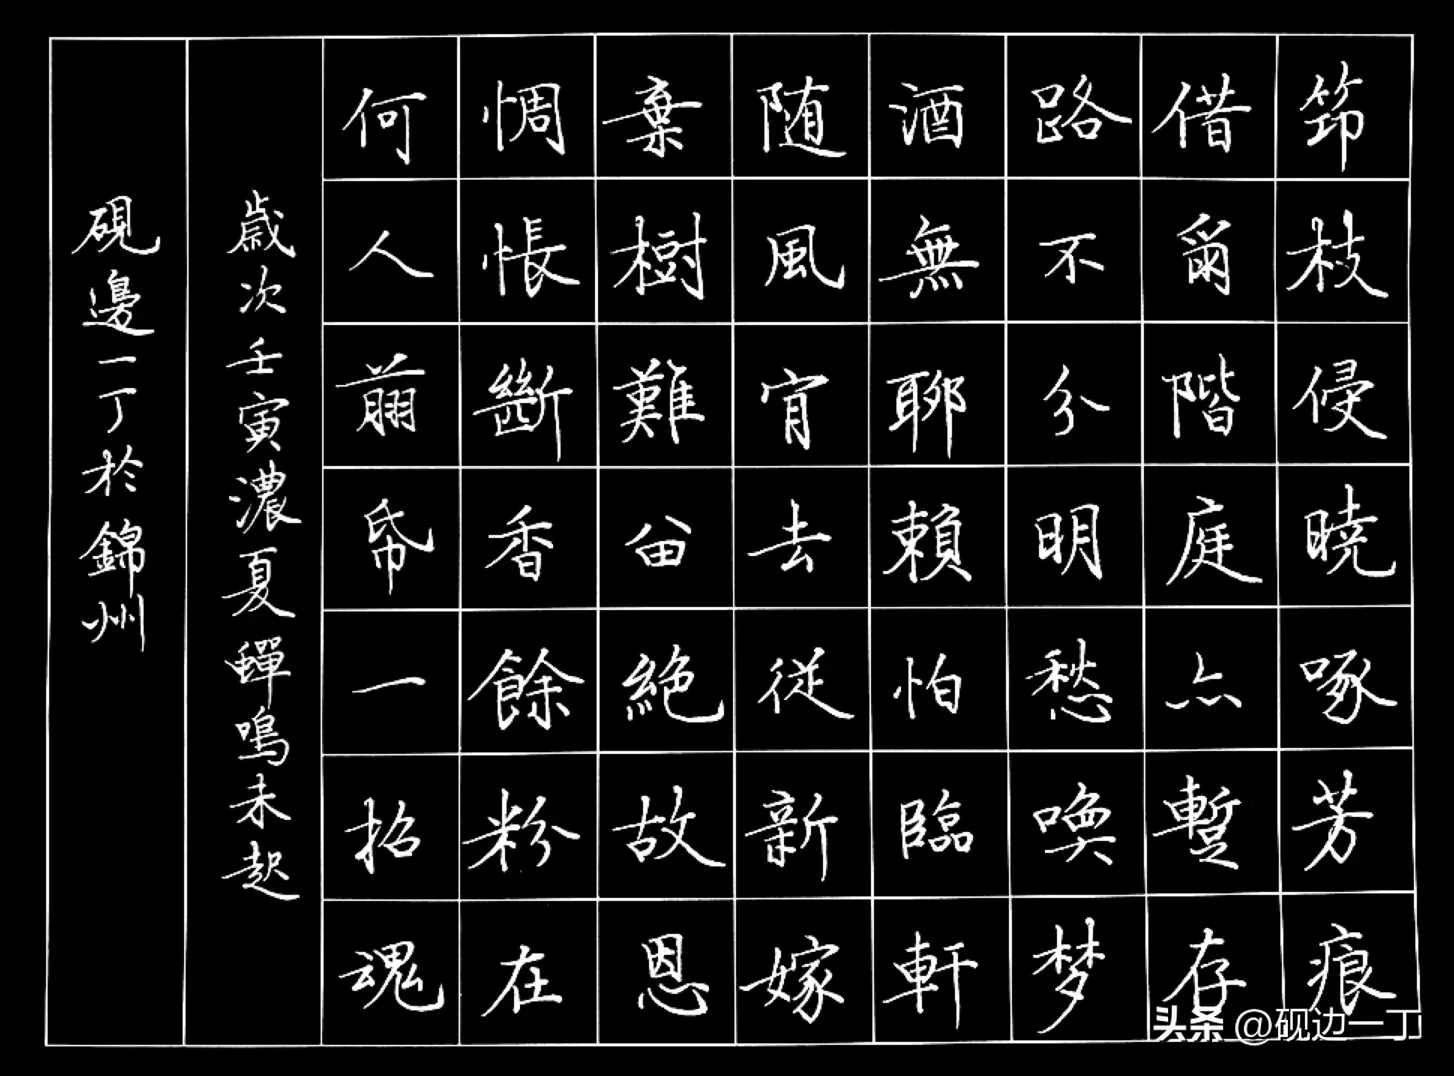 筇枝侵曉啄芳痕
借爾階庭亦暫存
路不分明愁喚梦
酒無聊賴怕臨軒
随風肎去從新嫁
棄樹難留絕故恩
惆悵斷香餘粉在
何人翦帋一招魂
歲次壬寅濃夏蟬鳴未起
硯邊一丁於錦州
头条 @砚边一丁